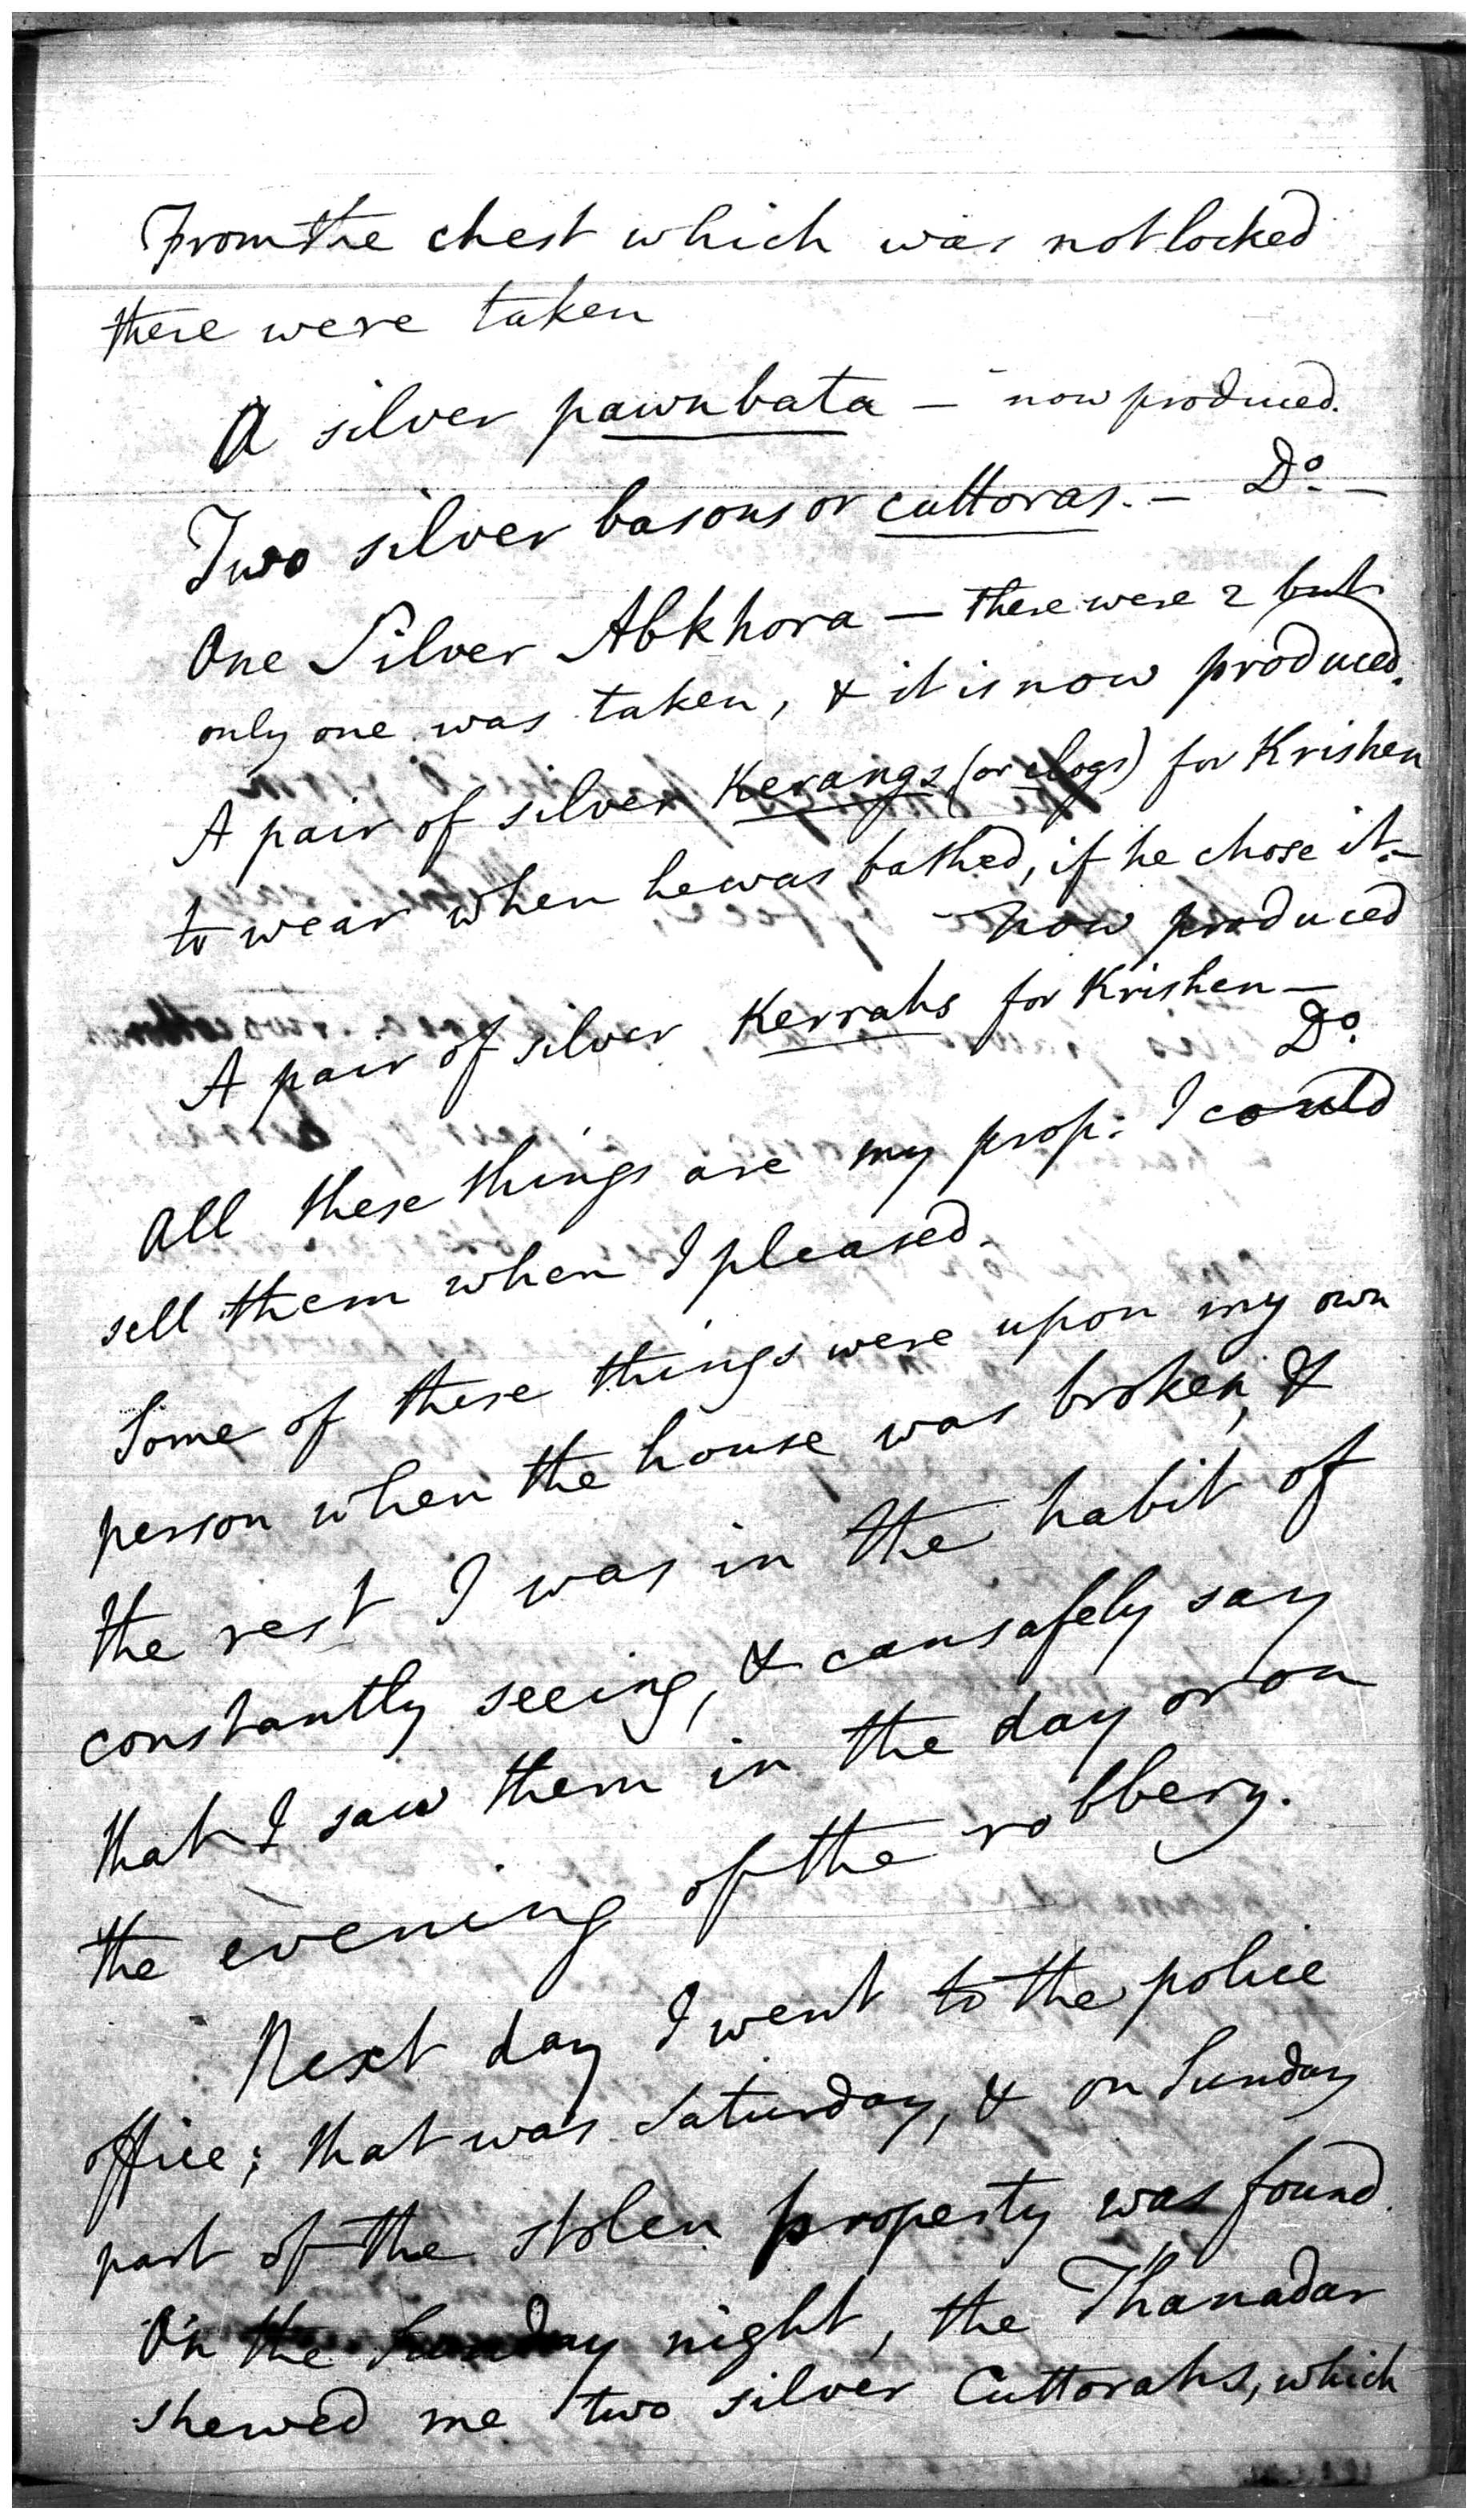 From the chest which was not locked
there were taken
A silver pawnbata — now produced.
Two silver basons or cuttoras. — Do. —
One Silver Abkhora — there were 2 but
only one was taken, & it is now produced.
A pair of silver Kerangs (or clogs) for Krishen
to wear when he was bathed, if he chose it. —
now produced
A pair of silver Kerrahs for Krishen —
Do.
All these things are my prop: I could
sell them when I pleased.
Some of these things were upon my own
person when the house was broken, &
the rest I was in the habit of
constantly seeing, & can safely say
that I saw them in the day or on
the evening of the robbery.
Next day I went to the police
office; that was Saturday, & on Sunday
part of the stolen property was found.
On the Sunday night, the Thanadar
shewed me two silver Cuttorahs, which